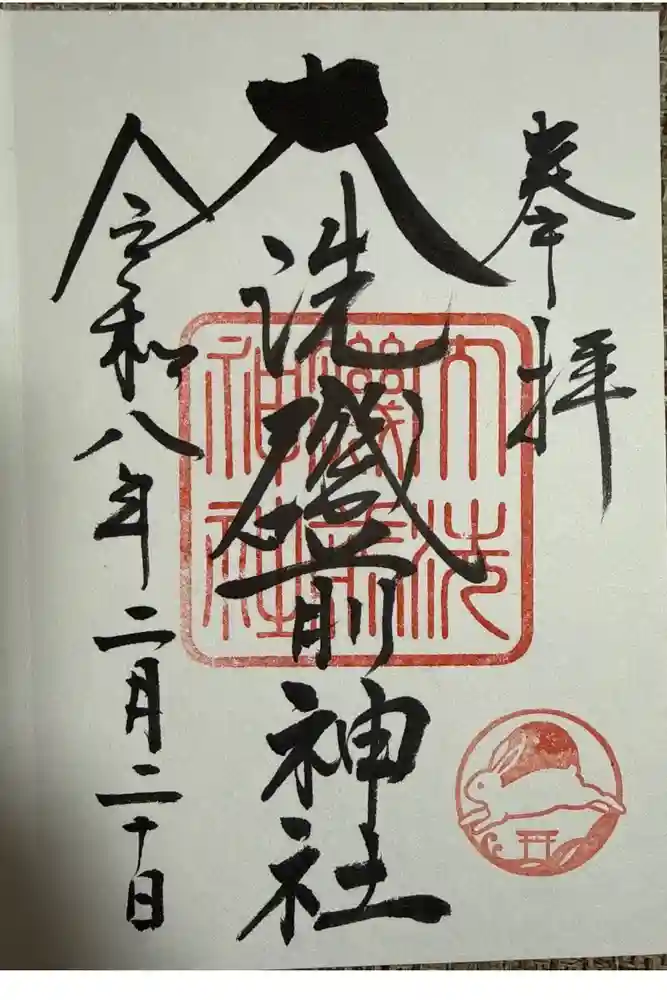 奉拝
大洗磯前神社
大洗
磯前
神社
令和八年二月二十日